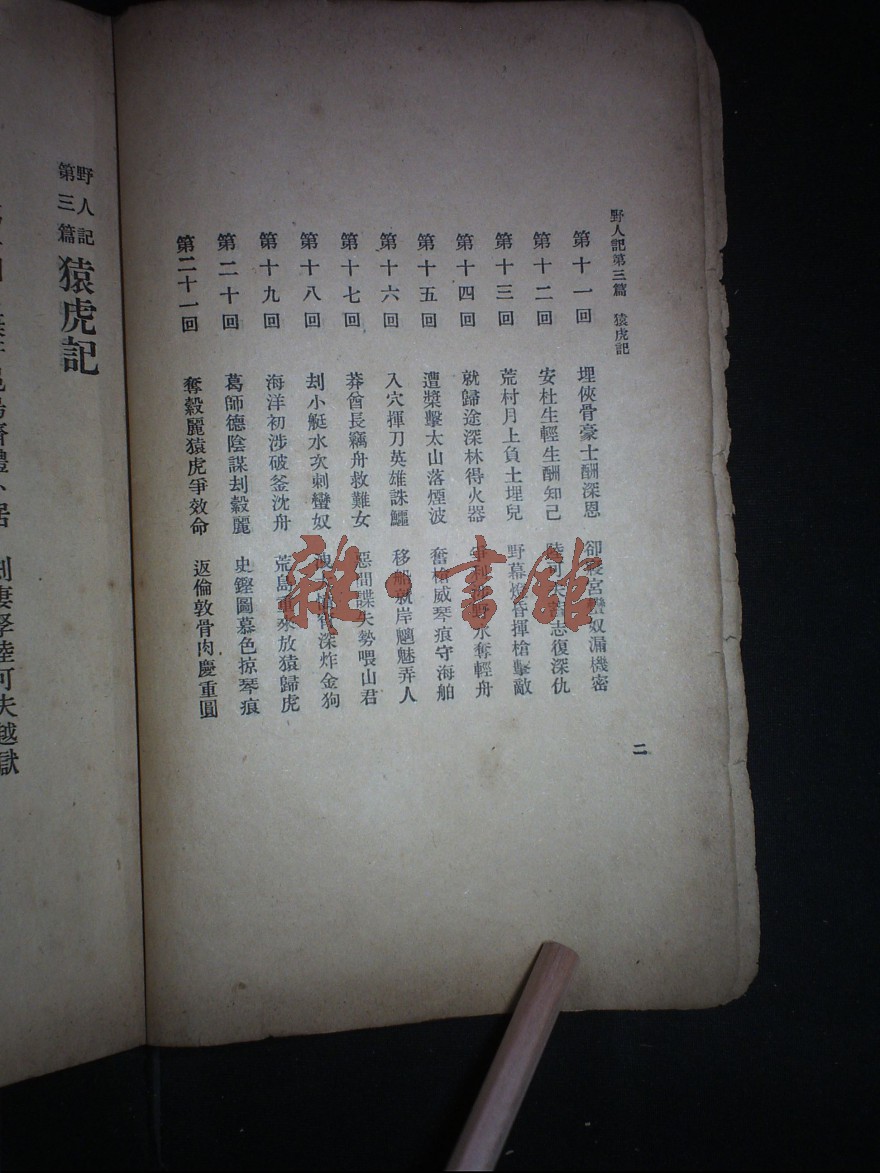 野人記第三篇　猿虎記
第十一回　埋俠骨豪士酬深恩　卻　宮蠻奴漏機密
第十二回　安杜生輕生酬知己　陸　夫　志復深仇
第十三回　荒村月上負土埋兒　野幕　　揮槍擊敵
第十四回　就歸途深林得火器　　　　野水奪輕舟
第十五回　遭槳擊太山落煙波　奮槍威琴痕守海舶
第十六回　入穴揮刀英雄誅鱷　移船就岸魍魅弄人
第十七回　莽酋長竊舟救難女　惡間諜失勢喂山君
第十八回　刦小艇水次刺蠻奴　　　　　深炸金狗
第十九回　海洋初涉破釜沈舟　荒島重來放猿歸虎
第二十回　葛師德陰謀刦縠麗　史鏗圖慕色掠琴痕
第二十一回　奪縠麗猿虎爭效命　返倫敦骨肉慶重圓
二
野人記
第三篇
猿虎記
妻孥陸可夫越獄